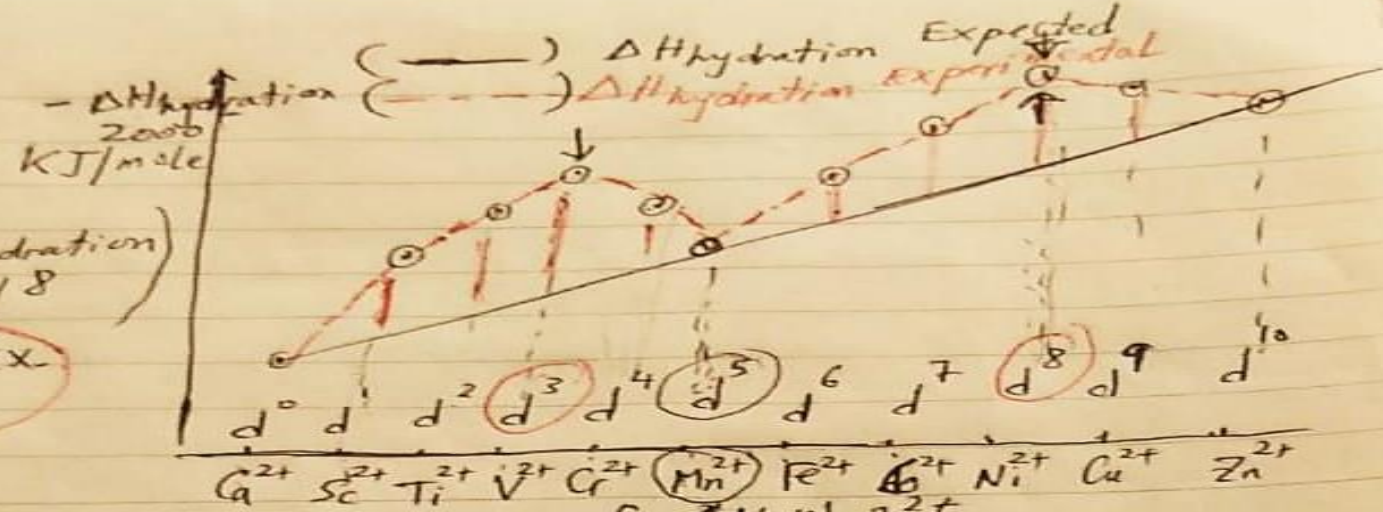 (——) ΔHhydration Expected
- ΔHhydration (- - - -) ΔHhydration Experimental
2000
KJ/mole
dration)
8
x-
d⁰ d¹ d² d³ d⁴ d⁵ d⁶ d⁷ d⁸ d⁹ d¹⁰
Ca²⁺ Sc²⁺ Ti²⁺ V²⁺ Cr²⁺ Mn²⁺ Fe²⁺ Co²⁺ Ni²⁺ Cu²⁺ Zn²⁺